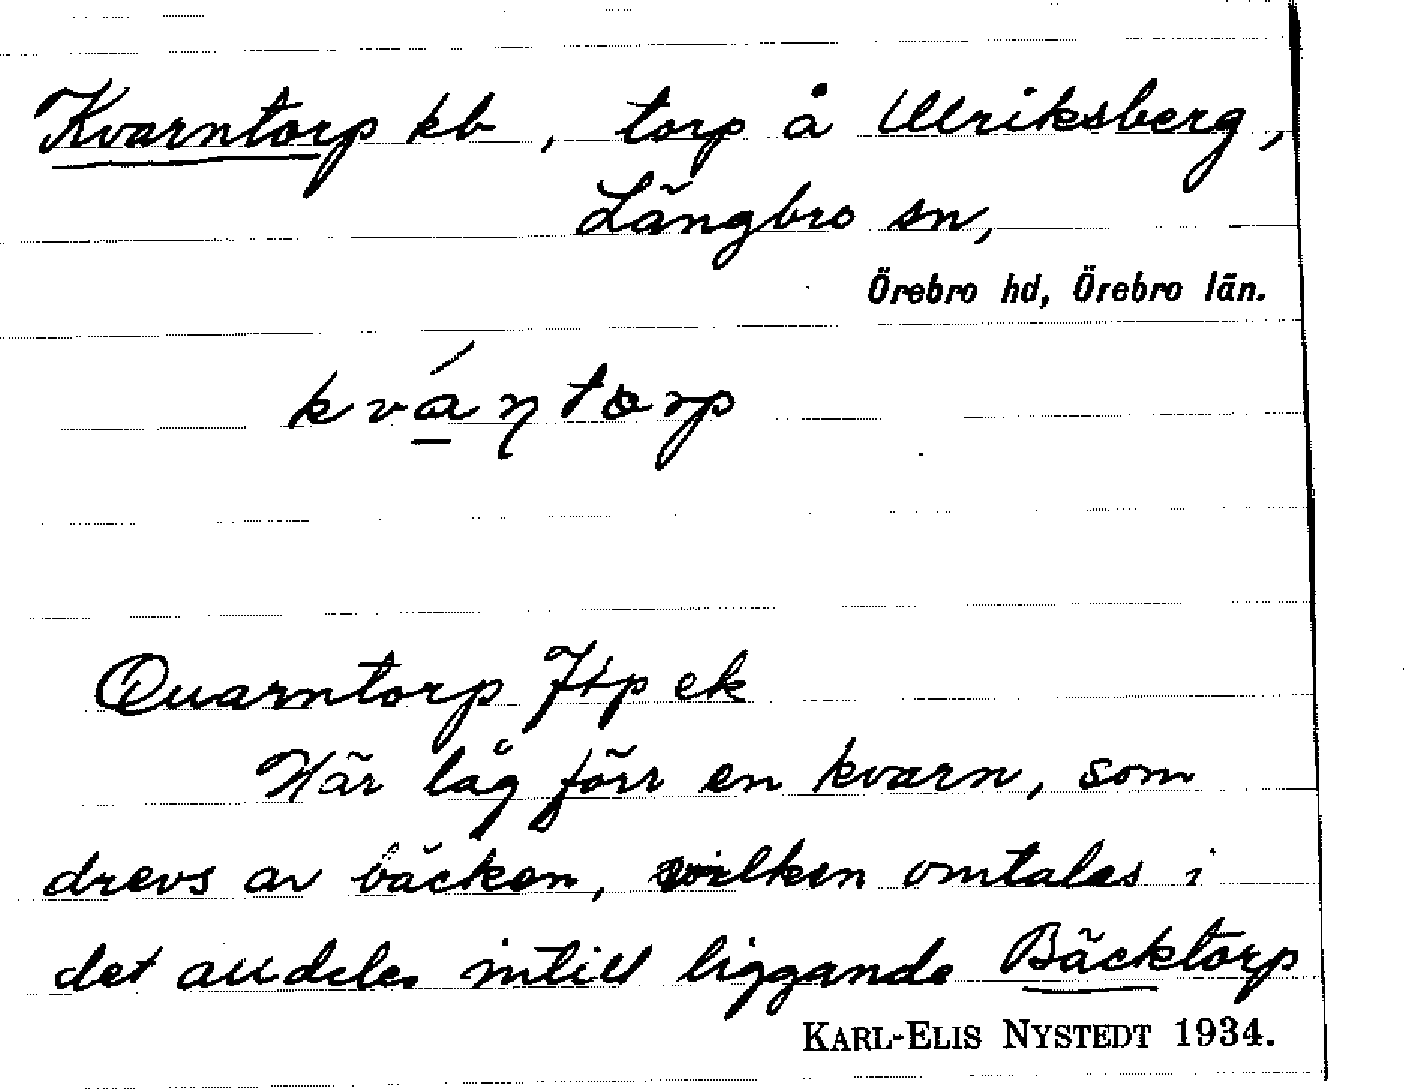 Kvarntorp kb, torp å Ullriksberg,
Längbro sn,
Örebro hd, Örebro län.
kvá̱ηtorp
Quarntorp Jtp ek
Här låg förr en kvarn, som
drevs av bäcken, vilken omtalas i
det alldeles intill liggande Bäcktorp
KARL-ELIS NYSTEDT 1934.